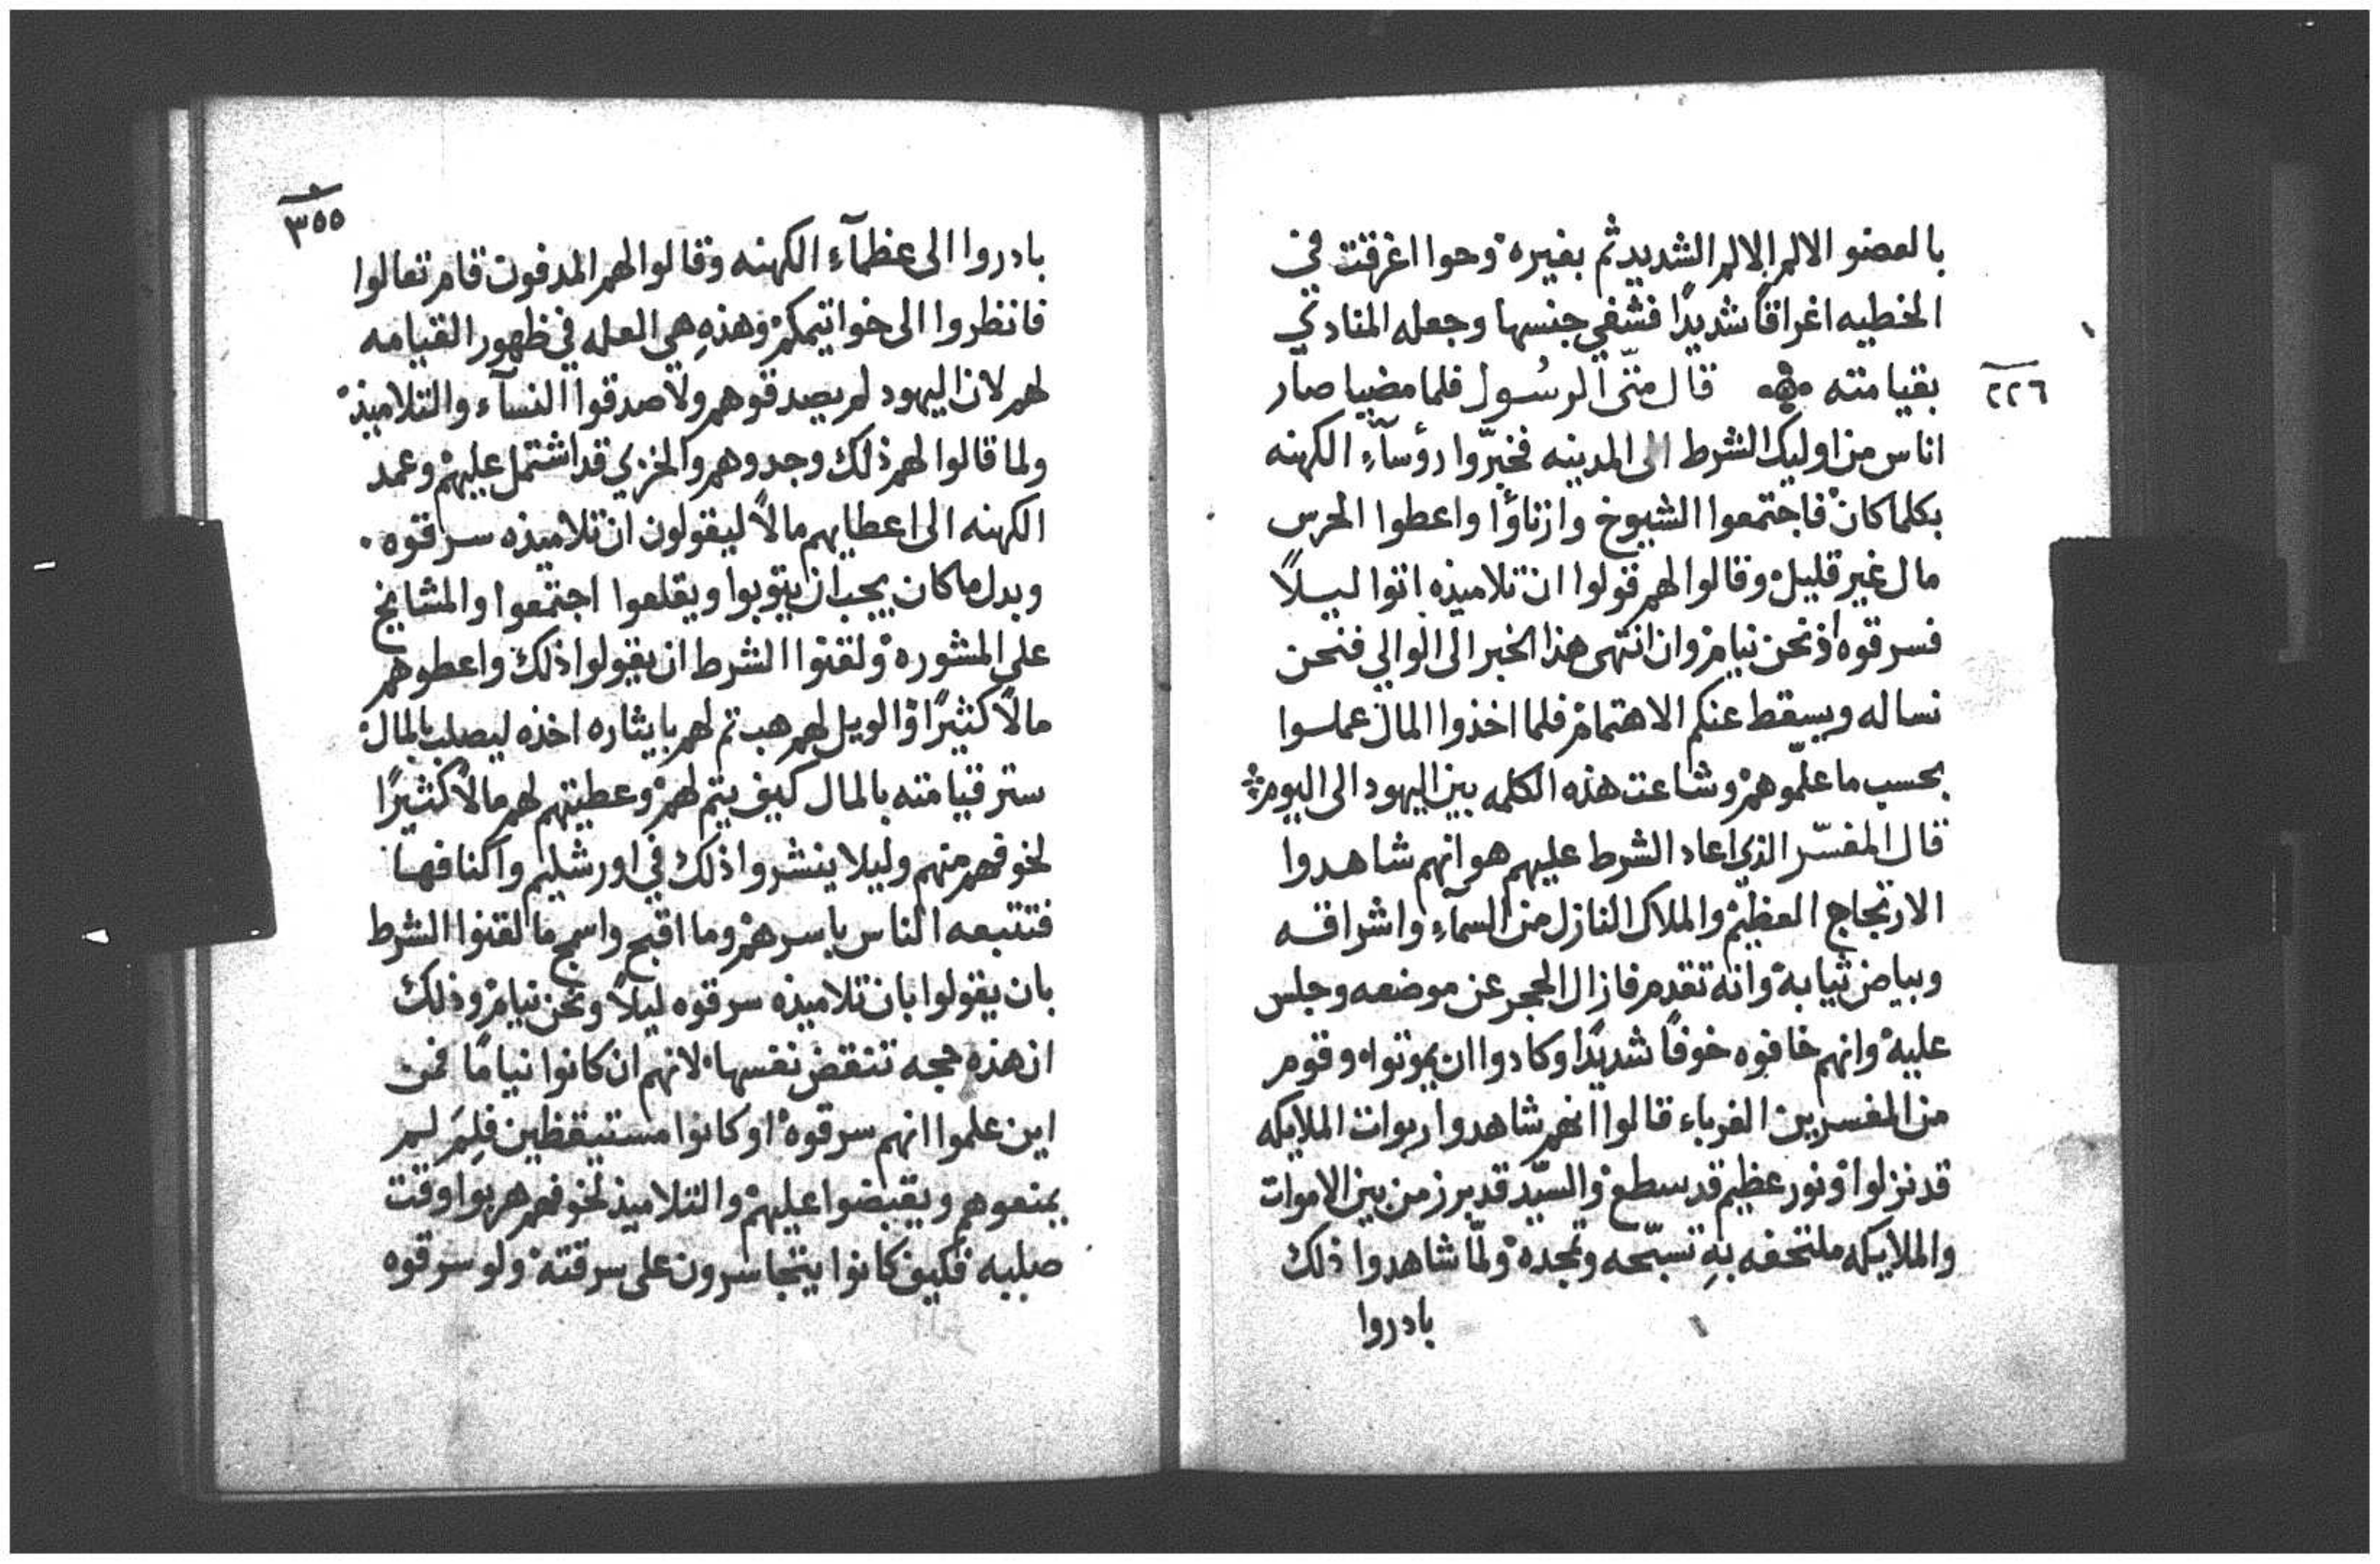 بالعضو الالم الالم الشديد ثم بغيره وحوا اغرقت في
الخطيه اغراقاً شديدًا فشفي جنسها وجعله المنادي
٢٢٦
بقيامته قال متّى الرسول فلما مضيا صار
اناس من اوليك الشرط الى المدينه فخبّروا رؤسآءِ الكهنه
بكلما كان فاجتمعوا الشيوخ وارتاؤا واعطوا الحرس
مال غير قليل وقالوا لهم قولوا ان تلاميذه اتوا ليلاً
فسرقوه اذ نحن نيام وان انتهى هذا الخبر الى الوالي فنحن
نساله ويسقط عنكم الاهتمام فلما اخذوا المال عملوا
بحسب ما علّموهم وشاعت هذه الكلمه بين اليهود الى اليوم
قال المفسّر الذي اعاد الشرط عليهم هو انهم شاهدوا
الارتجاج العظيم والملاك النازل من السمآءِ واشراقه
وبياض ثيابه وانه تقدم فازال الحجر عن موضعه وجلس
عليه وانهم خافوه خوفًا شديدًا وكادوا ان يموتوا وقوم
من المفسرين الغرباء قالوا انهم شاهدوا ربوات الملايكه
قد نزلوا ونور عظيم قد سطع والسيّد قد برز من بين الاموات
والملايكه ملتحفه بهِ تسبّحه وتمجده ولمّا شاهدوا ذلك
بادروا
٣٥٥
بادروا الى عظمآءِ الكهنه وقالوا لهم المدفون قام تعالوا
فانظروا الى خواتيمكم وهذهِ هي العله في ظهور القيامه
لهم لان اليهود لم يصدقوهم ولا صدقوا النسآء والتلاميذ
ولما قالوا لهم ذلك وجدوهم والخزي قد اشتمل عليهم وعمد
الكهنه الى اعطايهم مالاً ليقولون ان تلاميذه سرقوه
وبدل ما كان يجب ان يتوبوا ويقلعوا اجتمعوا والمشايخ
على المشوره ولقنوا الشرط ان يقولوا ذلك واعطوهم
مالاً كثيرًا والويل لهم هب تم لهم بايثاره اخذه ليصلب بالمال
ستر قيامته بالمال كيف يتم لهم وعطيتهم لهم مالاً كثيرًا
لخوفهم منهم وليلا ينشروا ذلك في اورشليم واكنافها
فتتبعه الناس باسرهم وما اقبح واسمج ما لقنوا الشرط
بان يقولوا بان تلاميذه سرقوه ليلاً ونحن نيام وذلك
ان هذه حجه تنقض نفسها لانهم ان كانوا نيامًا فمن
اين علموا انهم سرقوه او كانوا مستيقظين فلِمَ لم
يمنعوهم ويقبضوا عليهم والتلاميذ لخوفهم هربوا وقت
صلبه فكيف كانوا يتجاسرون على سرقته ولو سرقوه